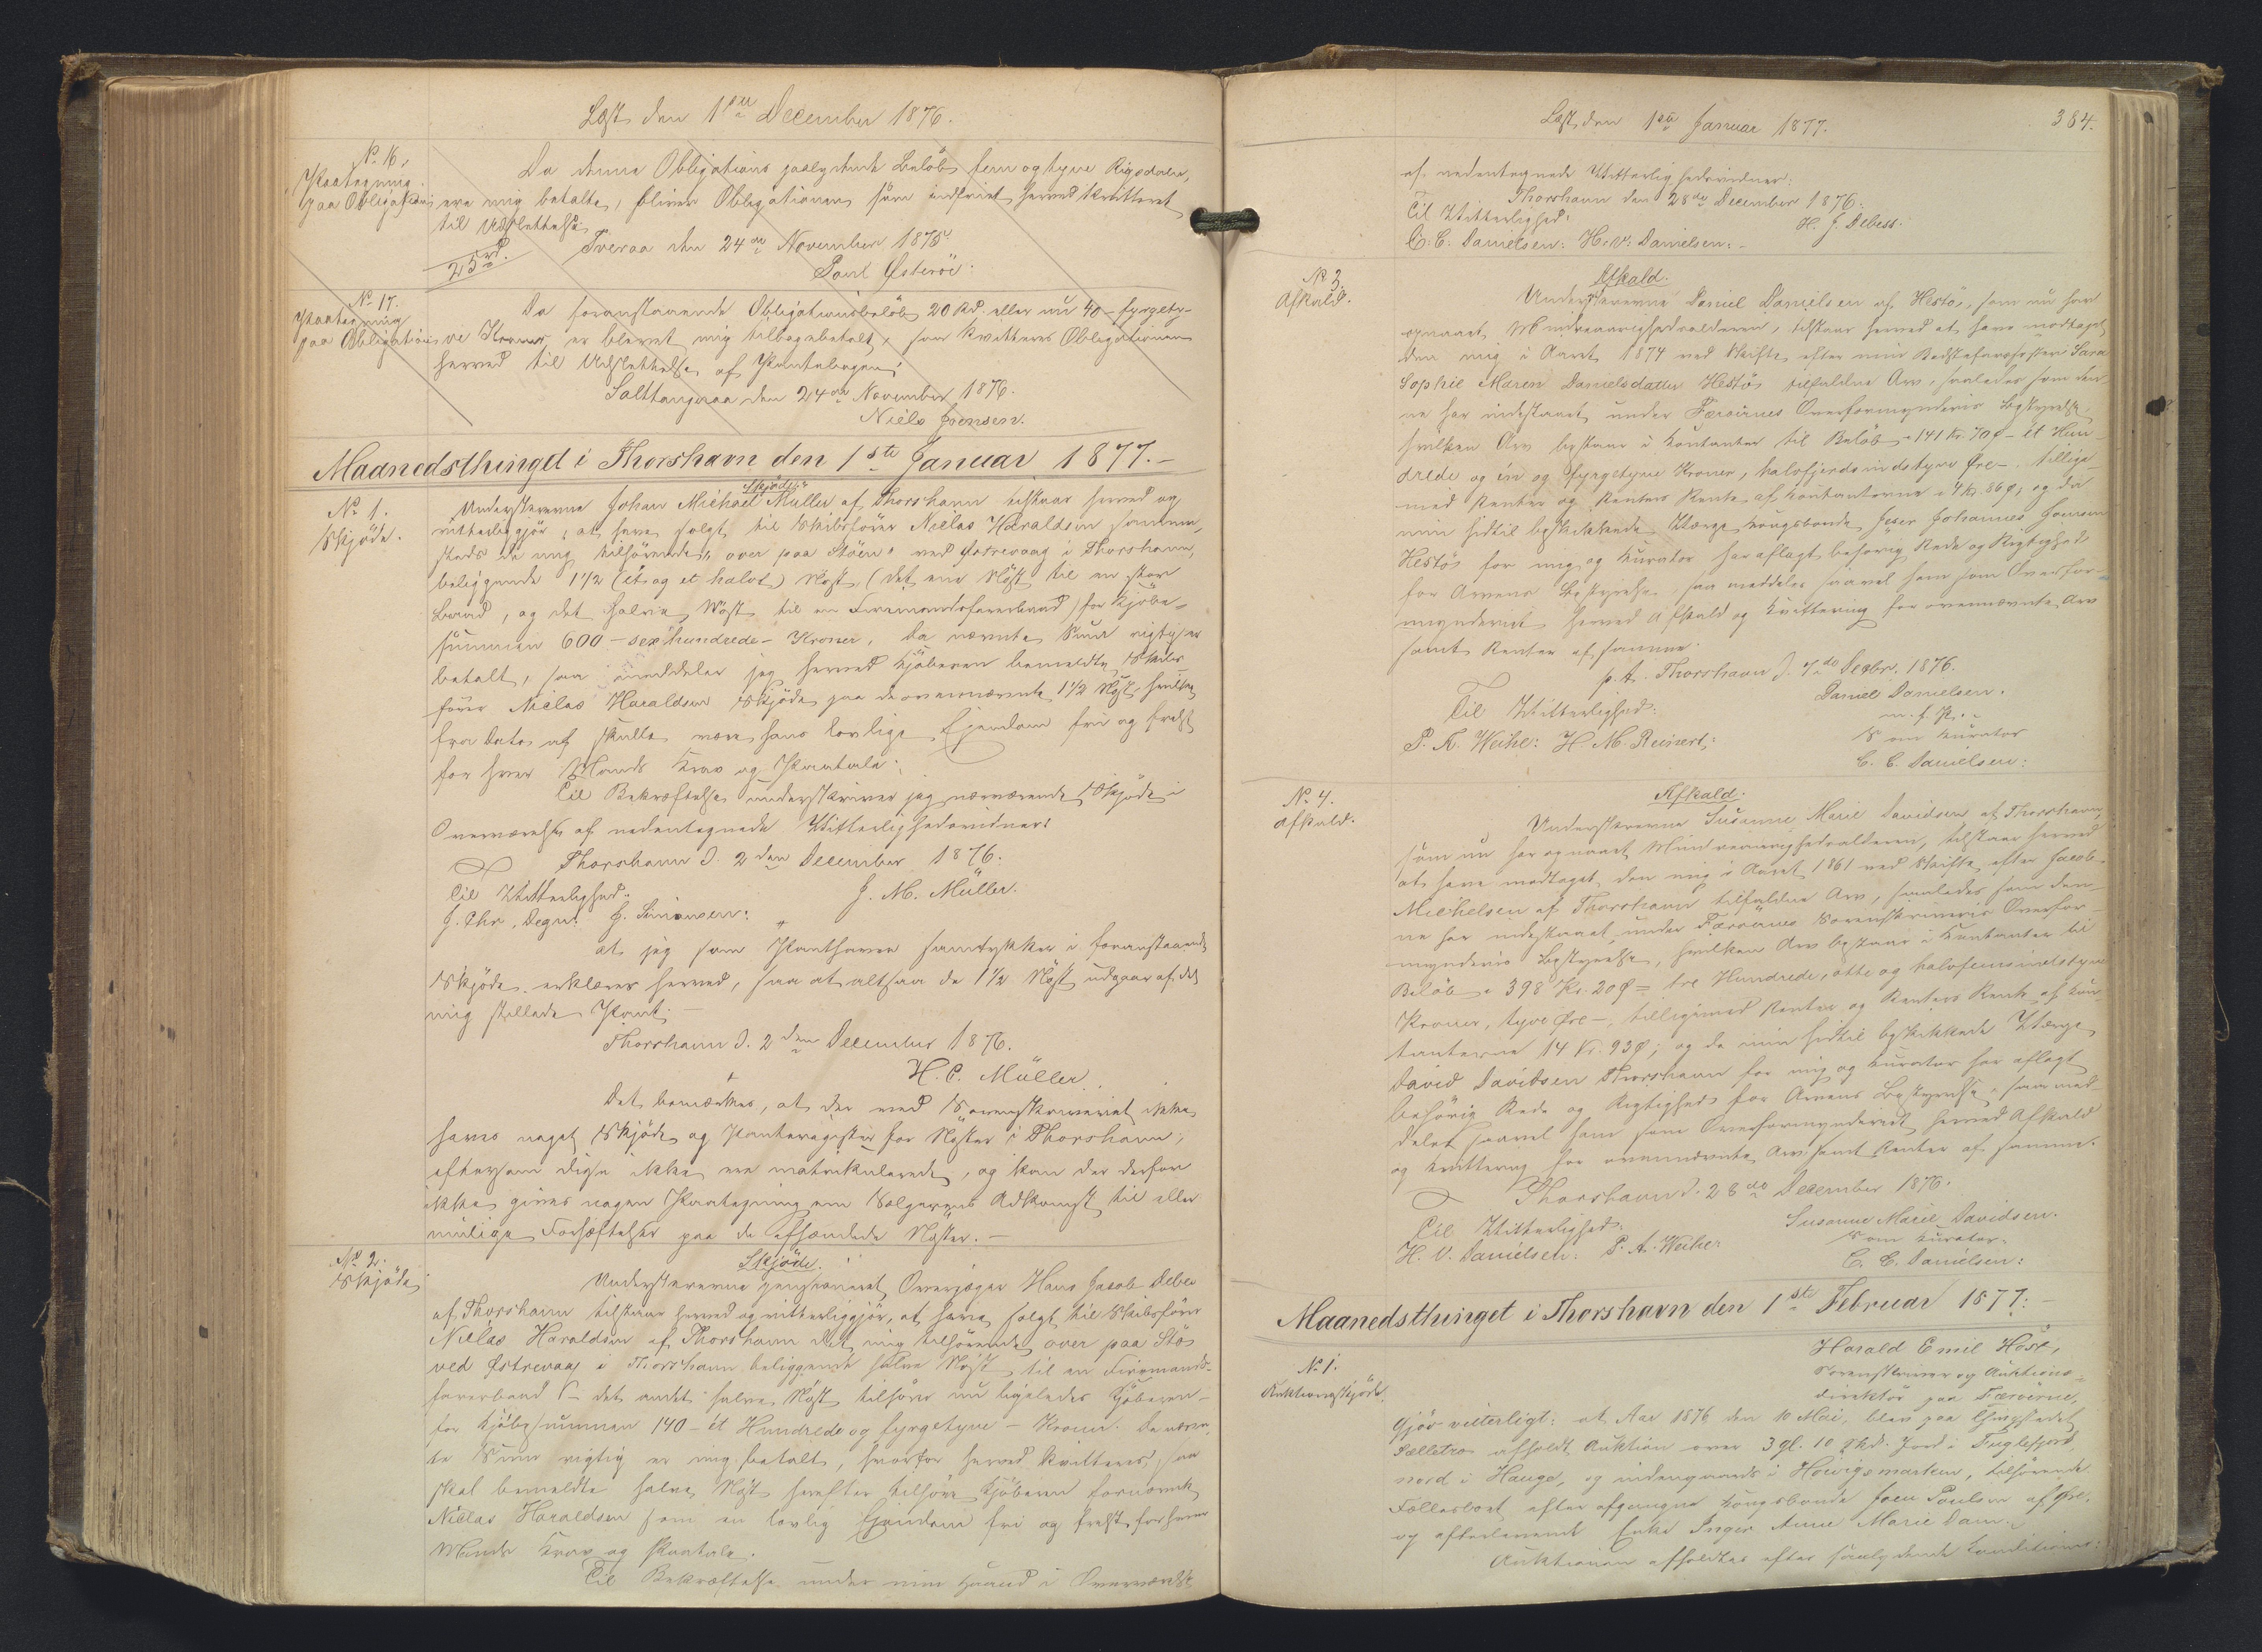 Læst den 1ste December 1876.
No. 16.
Paategning
paa Obligation
Da denne Obligations paalydende Beløb fem og tyve Rigsdaler,
ere mig betalte, bliver Obligationen som indfriet herved kvitteret
til Udslettelse
25 rd.
Tveraa den 24de November 1875
Poul Østerøe:
No. 17.
Paategning
paa Obligation
Da foranstaaende Obligationsbeløb 20 Rd. eller nu 40 - fyrgety-
ve Kroner er blevet mig tilbagebetalt, saa kvitteres Obligationen
herved til Udslettelse af Pantebogen;
Salttangeraa den 24de November 1876.
Niels Joensen.
Maanedsthinget i Thorshavn den 1ste Januar 1877.-
No. 1.
Skjøde.
Skjøde
Underskrevne Johan Michael Müller af Thorshavn tilstaar herved og
vitterliggjør, at have solgt til Skibsfører Niclas Haraldsen sammen-
steds de mig tilhørende, over paa Støen" ved Østrevaag i Thorshavn,
beliggende 1 1/2 (et og et halvt) Nøst, (det ene Nøst til en stor
Baad, og det halve Nøst til en Firemandsfarerbaad) for Kjøbe-
summen 600 - sexhundrede - Kroner. Da nævnte Sum rigtig er
betalt, saa meddeler jeg herved Kjøberen bemeldte Skibs-
fører Niclas Haraldsen Skjøde paa de ovennævnte 1 1/2 Nøst, hvilke
fra Dato af skulle være hans lovlige Ejendom fri og frelst
for hver Mands Krav og Paatale.
Til Bekræftelse underskriver jeg nærværende Skjøde i
Overværelse af nedentegnede Vitterlighedsvidner.
Thorshavn d. 2den December 1876.
Til Vitterlighed:
J. M. Müller.
J. Chr. Degn: J. Simonsen:
at jeg som Panthaver samtykker i foranstaaende
Skjøde erklæres herved, saa at altsaa de 1 1/2 Nøst udgaar af det
mig stillede Pant. -
Thorshavn d. 2den December 1876.
H. C. Müller
Det bemærkes, at der ved Sorenskriveriet ikke
haves noget Skjøde og Panteregister for Nøster i Thorshavn,
eftersom disse ikke ere matrikulerede, og kan der derfor
ikke gives nogen Paategning om Sælgerens Adkomst til eller
mulige Forhæftelser paa de afhændede Nøster. -
No. 2.
Skjøde
Skjøde.
Underskrevne pensioneret Overjæger Hans Jacob Debes
af Thorshavn tilstaar herved og vitterliggjør, at have solgt til Skibsfører
Niclas Haraldsen af Thorshavn det mig tilhørende over paa Stø
ved Østrevaag i Thorshavn beliggende halve Nøst til en Firemands-
farerbaad - det andet halve Nøst tilhører nu ligeledes Kjøberen -
for Kjøbesummen 140 - ét Hundrede og fyrgetyve - Kroner. Da nævn-
te Sum rigtig er mig betalt, hvorfor herved kvitteres, saa
skal bemeldte halve Nøst herefter tilhøre Kjøberen fornævnte
Niclas Haraldsen som en lovlig Ejendom fri og frelst for hver
Mands Krav og Paatale.
Til Bekræftelse under min Haand i Overværelse
Læst den 1ste Januar 1877.
384.
af nedentegnede Vitterlighedsvidner.
Thorshavn den 28de December 1876.
Til Vitterlighed:
H. J. Debess.
C. C. Danielsen: H. V. Danielsen: -
No. 3.
Afkald.
Afkald.
Underskrevne Daniel Danielsen af Hestø, som nu har
opnaaet Mindreaarighedsalderen, tilstaar herved at have modtaget
den mig i Aaret 1874 ved Skifte efter min Sara
Sophie Maren Danielsdatter Hestø tilfaldne Arv, saaledes som den-
ne har indestaaet under Færøernes Overformynderis Bestyrelse,
hvilken Arv bestaar i Kontanter til Beløb - 141 Kr. 70 Ø - ét Hun-
drede og én og fyrgetyve Kroner, halvfjerdsindstyve Øre -. tillige-
med Renter og Renters Rente af Kontanterne i 4 Kr. 86 Ø, og da
min hidtil beskikkede Værge Kongsbonde Joser Johannes Joensen
Hestø for mig og Kurator har aflagt behørig Rede og Rigtighed
for Arvens Bestyrelse, saa meddeles saavel ham som Overfor-
mynderiet herved Afkald og Kvittering for ovennævnte Arv
samt Renter af samme.
p. t. Thorshavn d. 7de Decbr. 1876.
Til Vitterlighed:
Daniel Danielsen.
m. f. P.
P. A. Weihe: H. M. Reinert:
Som Kurator
C. C. Danielsen:
No. 4.
Afkald.
Afkald.
Underskrevne Susanne Marie Davidsen af Thorshavn,
som nu har opnaaet Mindreaarighedsalderen, tilstaar herved
at have modtaget den mig i Aaret 1861 ved Skifte efter Jacob
Michelsen af Thorshavn tilfaldne Arv, saaledes som den-
ne har indestaaet under Færøernes Sorenskriveris Overfor-
mynderis Bestyrelse, hvilken Arv bestaar i Kontanter til
Beløb - 398 Kr. 20 Ø = tre Hundrede, otte og halvfemsindstyve
Kroner, tyve Øre -, tilligemed Renter og Renters Rente af Kon-
tanterne 14 Kr. 93 Ø; og da min hidtil beskikkede Værge
David Davidsen Thorshavn for mig og Kurator har aflagt
behørig Rede og Rigtighed for Arvens Bestyrelse, saa med-
deles saavel ham som Overformynderiet herved Afkald
og Kvittering for ovennævnte Arv samt Renter af samme.
Thorshavn d. 28de December 1876.
Til Vitterlighed:
Susanne Marie Davidsen.
H. V. Danielsen: P. A. Weihe:
Som Kurator.
C. C. Danielsen:
Maanedsthinget i Thorshavn den 1ste Februar 1877: -
No. 1.
Auktionsskjøde.
Harald Emil Høst,
Sorenskriver og Auktions-
direktør paa Færøerne,
Gjør vitterligt: at Aar 1876 den 10 Mai, blev paa Thingstedet
Selletræ afholdt Auktion over 3 gl. 10 Skd. Jord i Fuglefjord,
nord i Hauge, og indengaards i Hoivigsmarken, tilhørende
Fællesboet efter afgangne Kongsbonde Joen Poulsen af Øre,
og efterlevende Enke Inger Anne Marie Dam.
Auktionen afholdtes efter saalydende Konditioner: